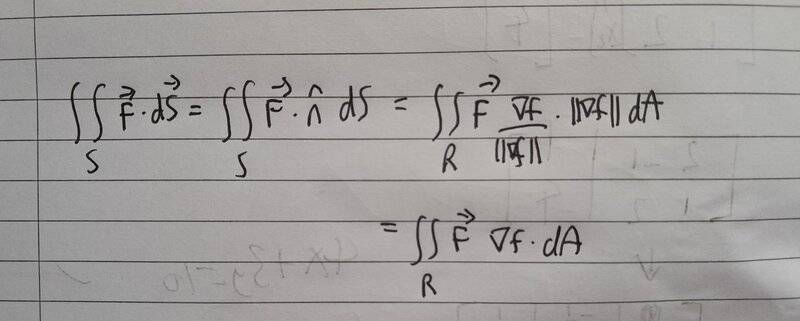 ∬_S F⃗ · dS⃗ = ∬_S F⃗ · n̂ dS = ∬_R F⃗ ∇f/||∇f|| · ||∇f|| dA
= ∬_R F⃗ ∇f · dA